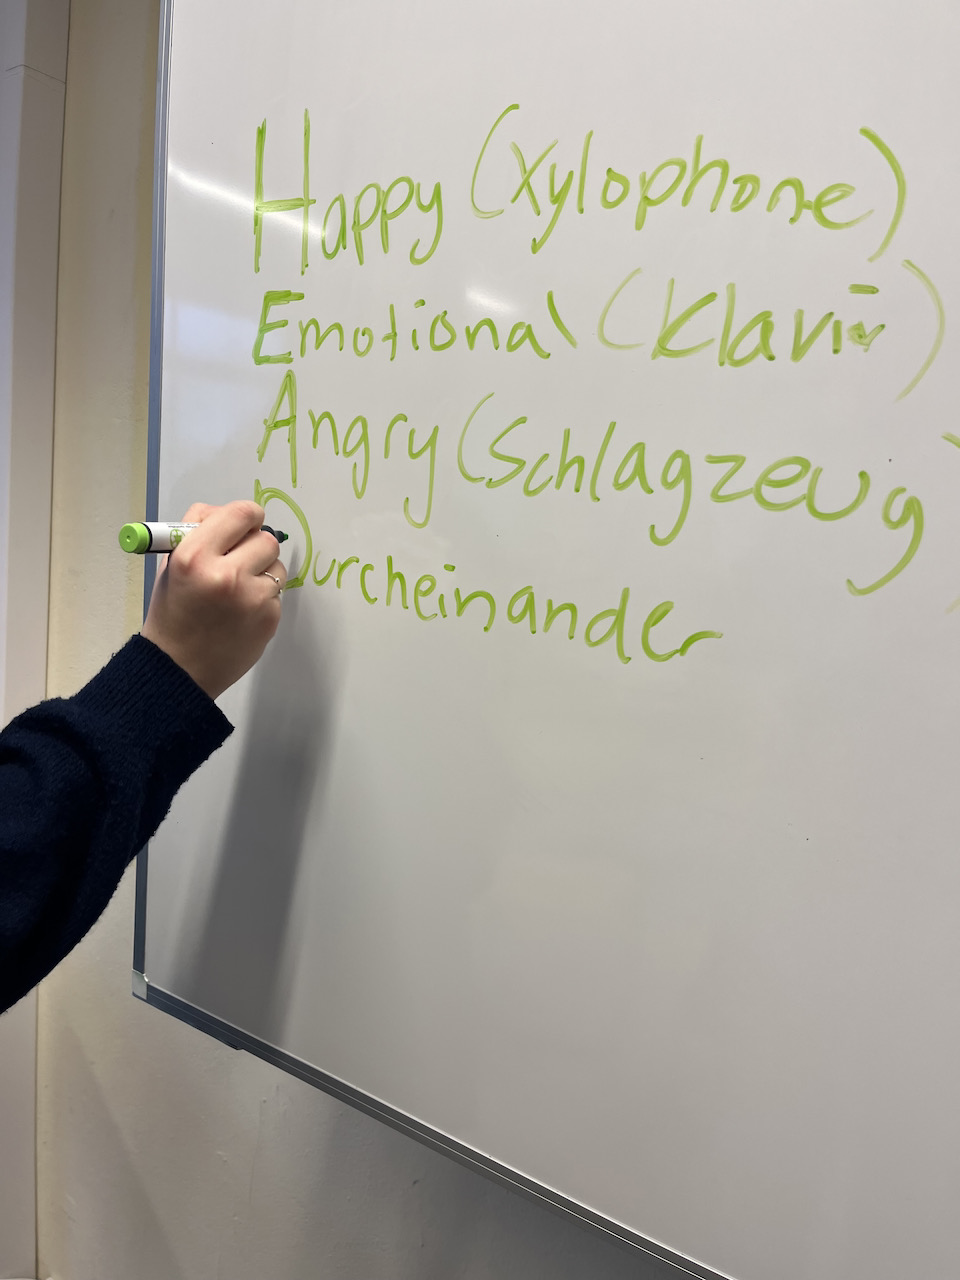 Happy (Xylophone)
Emotional (Klavier)
Angry (Schlagzeug)
Durcheinander